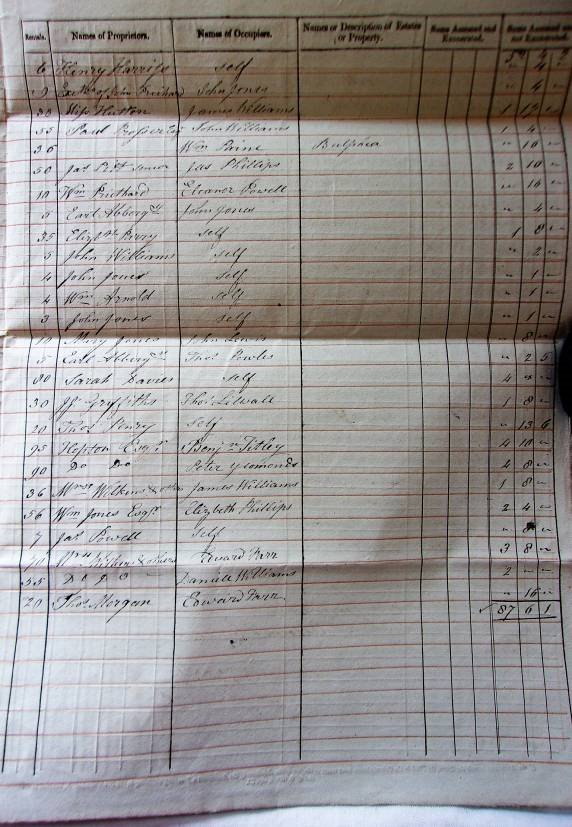 Rentals. Names of Proprietors. Names of Occupiers. Names or Description of Estates or Property. Sums Assessed and Exonerated. Sums Assessed and not Exonerated.
6 Henry Harriss self " 4 "
9 Exors of John Prichard John Jones " 4 "
30 Miss Hutton James Williams 1 12 "
55 Paul John Williams 1 4 "
36 Wm Paine " 10 "
50 Jas senior Jas Phillips 2 10 "
10 Wm Prichard Eleanor Powell " 16 "
5 Earl Abbergy John Jones " 4 "
35 Elizth Perry self 1 8 "
5 John Williams self " 2 "
4 John Jones self " 1 "
4 Wm Arnold self " 1 "
3 John Jones self " 1 "
10 Mary Jones John Lewis " 8 "
5 Earl Abbergy Thos Powles " 2 5
80 Sarah Davies self 4 " "
30 Griffiths Thos 1 8 "
20 Thos self " 13 6
95 Hopton Esqr Benjn Titley 4 10 "
90 Do Do Peter ysomonds 4 8 "
36 Wilkins & others James Williams 1 8 "
56 Wm Jones Esqr Elizbeth Phillips 2 4 "
7 Jas Powell self " 8 "
70 & others Edward Parr 3 8 "
55 Do Do Daniell Williams 2 " "
20 Thos Morgan Edward Parr " 16 "
87 6 1